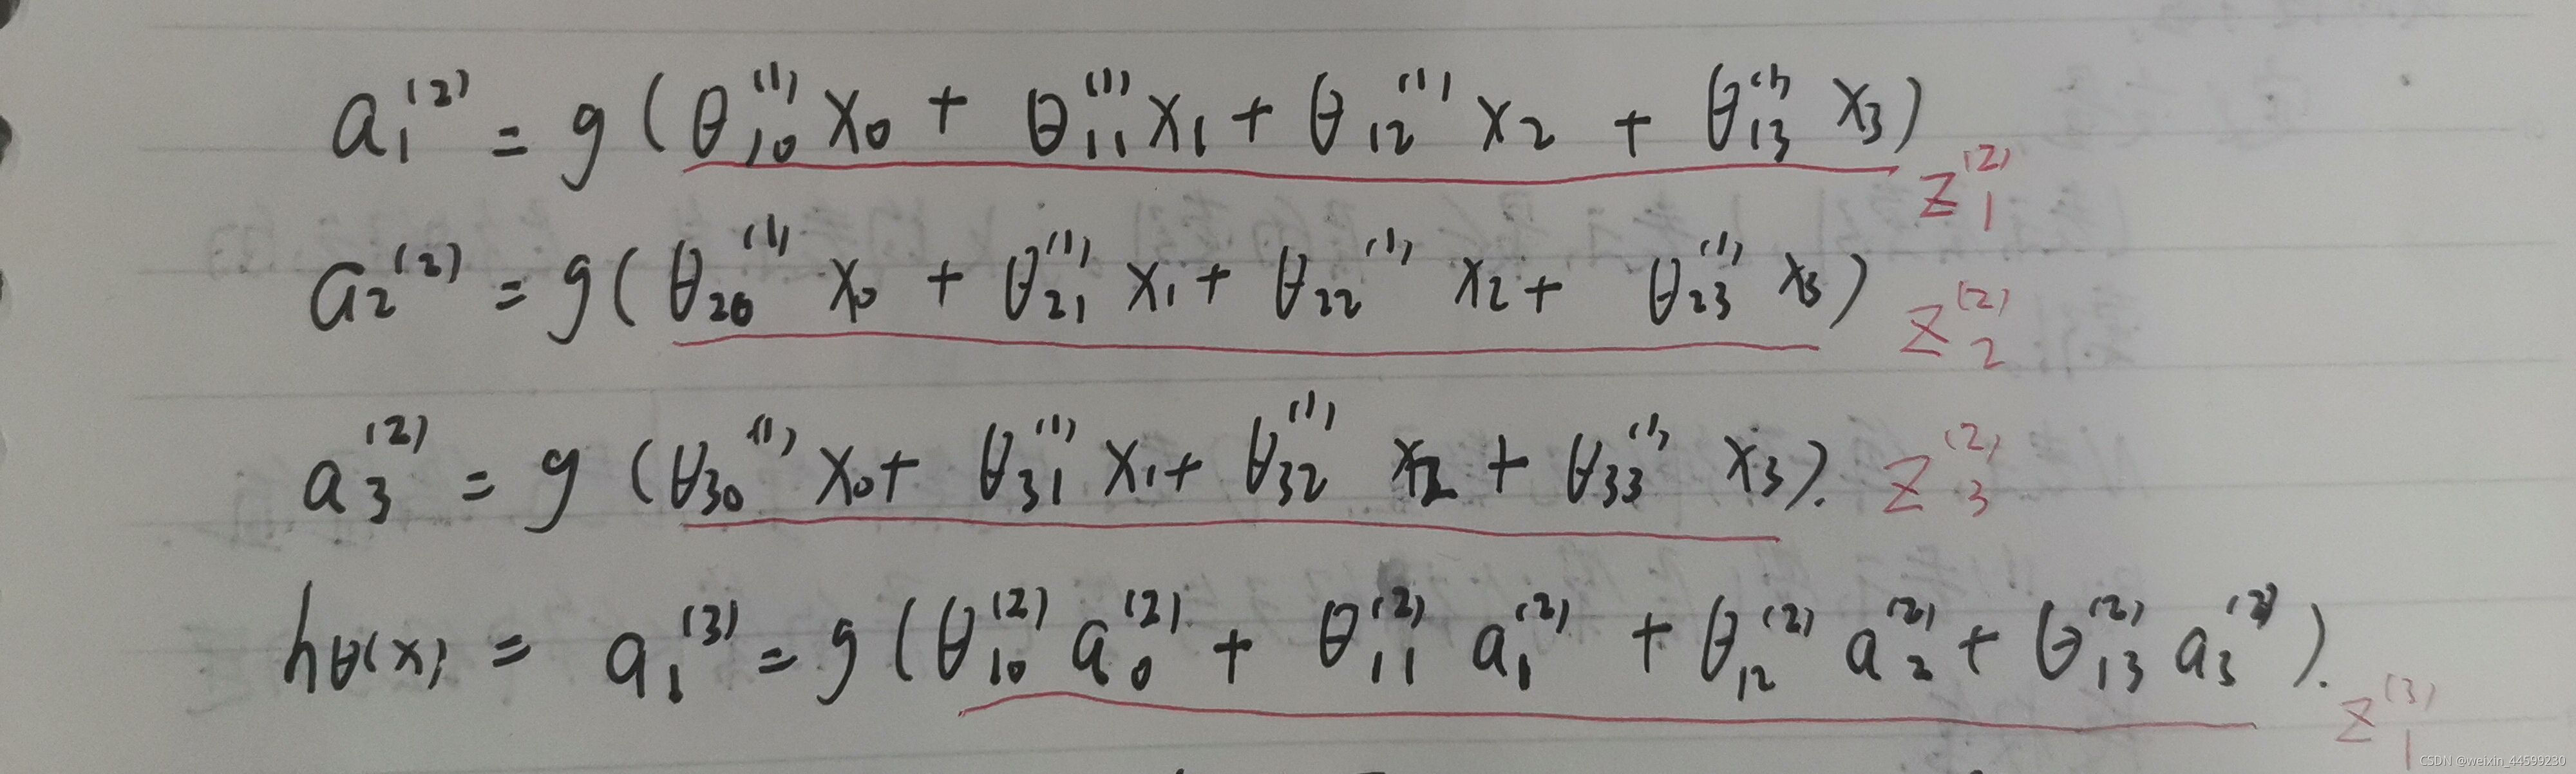 a₁⁽²⁾ = g(θ₁₀⁽¹⁾ x₀ + θ₁₁⁽¹⁾ x₁ + θ₁₂⁽¹⁾ x₂ + θ₁₃⁽¹⁾ x₃) z₁⁽²⁾
a₂⁽²⁾ = g(θ₂₀⁽¹⁾ x₀ + θ₂₁⁽¹⁾ x₁ + θ₂₂⁽¹⁾ x₂ + θ₂₃⁽¹⁾ x₃) z₂⁽²⁾
a₃⁽²⁾ = g(θ₃₀⁽¹⁾ x₀ + θ₃₁⁽¹⁾ x₁ + θ₃₂⁽¹⁾ x₂ + θ₃₃⁽¹⁾ x₃). z₃⁽²⁾
hθ(x) = a₁⁽³⁾ = g(θ₁₀⁽²⁾ a₀⁽²⁾ + θ₁₁⁽²⁾ a₁⁽²⁾ + θ₁₂⁽²⁾ a₂⁽²⁾ + θ₁₃⁽²⁾ a₃⁽²⁾). z₁⁽³⁾
CSDN @weixin_44599230